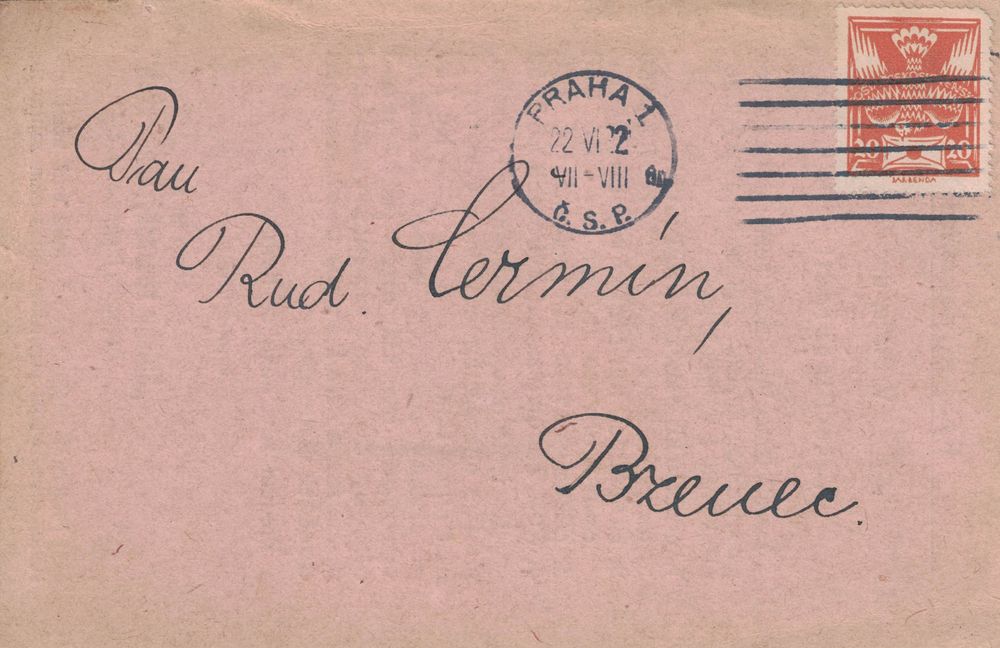 PRAHA 1
22 VI 2
VII-VIII
Č. S. P.
20 20
JAR. BENDA
Pan
Rud. Cermín,
Bzenec.